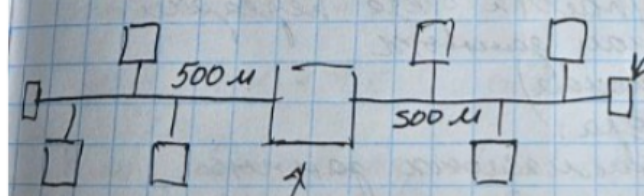 500 м
500 м